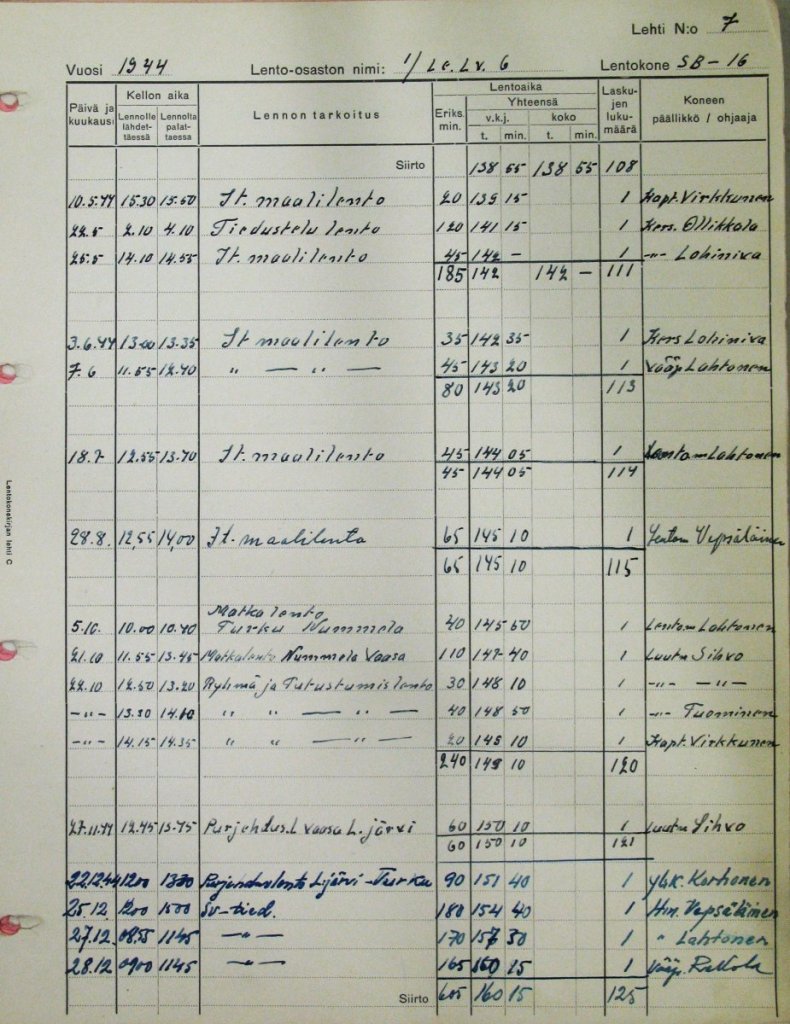 Lehti N:o 7
Vuosi 1944 Lento-osaston nimi: 1/Le.Lv. 6 Lentokone SB-16
Päivä ja kuukausi Kellon aika Lennolle lähdettäessä Lennolta palattaessa Lennon tarkoitus Lentoaika Eriks. min. Yhteensä v.k.j. t. min. koko t. min. Laskujen lukumäärä Koneen päällikkö / ohjaaja
Siirto 138 55 138 55 108
10.5.44 15.30 15.50 It. maalilento 20 139 15 1 Kapt. Virkkunen
22.5 2.10 4.10 Tiedustelu lento 120 141 15 1 Kers. Ollikkala
25.5 14.10 14.55 It. maalilento 45 142 — 1 -"- Lohiniva
185 142 142 — 111
3.6.44 13.00 13.35 It maalilento 35 142 35 1 Kers Lohiniva
7.6 11.55 12.40 " — " — 45 143 20 1 Vääp Lahtonen
80 143 20 113
18.7 12.55 13.40 It. maalilento 45 144 05 1 Lentom Lahtonen
45 144 05 114
28.8. 12,55 14,00 It. maalilento 65 145 10 1 Lentom Vepsäläinen
65 145 10 115
Matkalento
5.10. 10.00 10.40 Turku Nummela 40 145 50 1 Lentom Lahtonen
21.10 11.55 13.45 Matkalento Nummela Vaasa 110 147 40 1 Luutn Sihvo
22.10 12.50 13.20 Ryhmä ja Tutustumislento 30 148 10 1 -"- -"-
-"- 13.30 14.10 " " — " — 40 148 50 1 -"- Tuominen
-"- 14.15 14.35 " " — " — 20 149 10 1 Kapt. Virkkunen
240 149 10 120
27.11.44 12.45 13.45 Purjehdus.L Vaasa L.järvi 60 150 10 1 Luutn Sihvo
60 150 10 121
22.12.44 1200 1330 Purjehduslento Ljärvi-Turku 90 151 40 1 Ylik. Korhonen
25.12. 1200 1500 Sv-tied. 180 154 40 1 Hm. Vepsäläinen
27.12. 0855 1145 -"- 170 157 30 1 " Lahtonen
28.12 0900 1145 -"- 165 160 15 1 Vääp.
Siirto 605 160 15 125
Lentokonekirjan lehti C